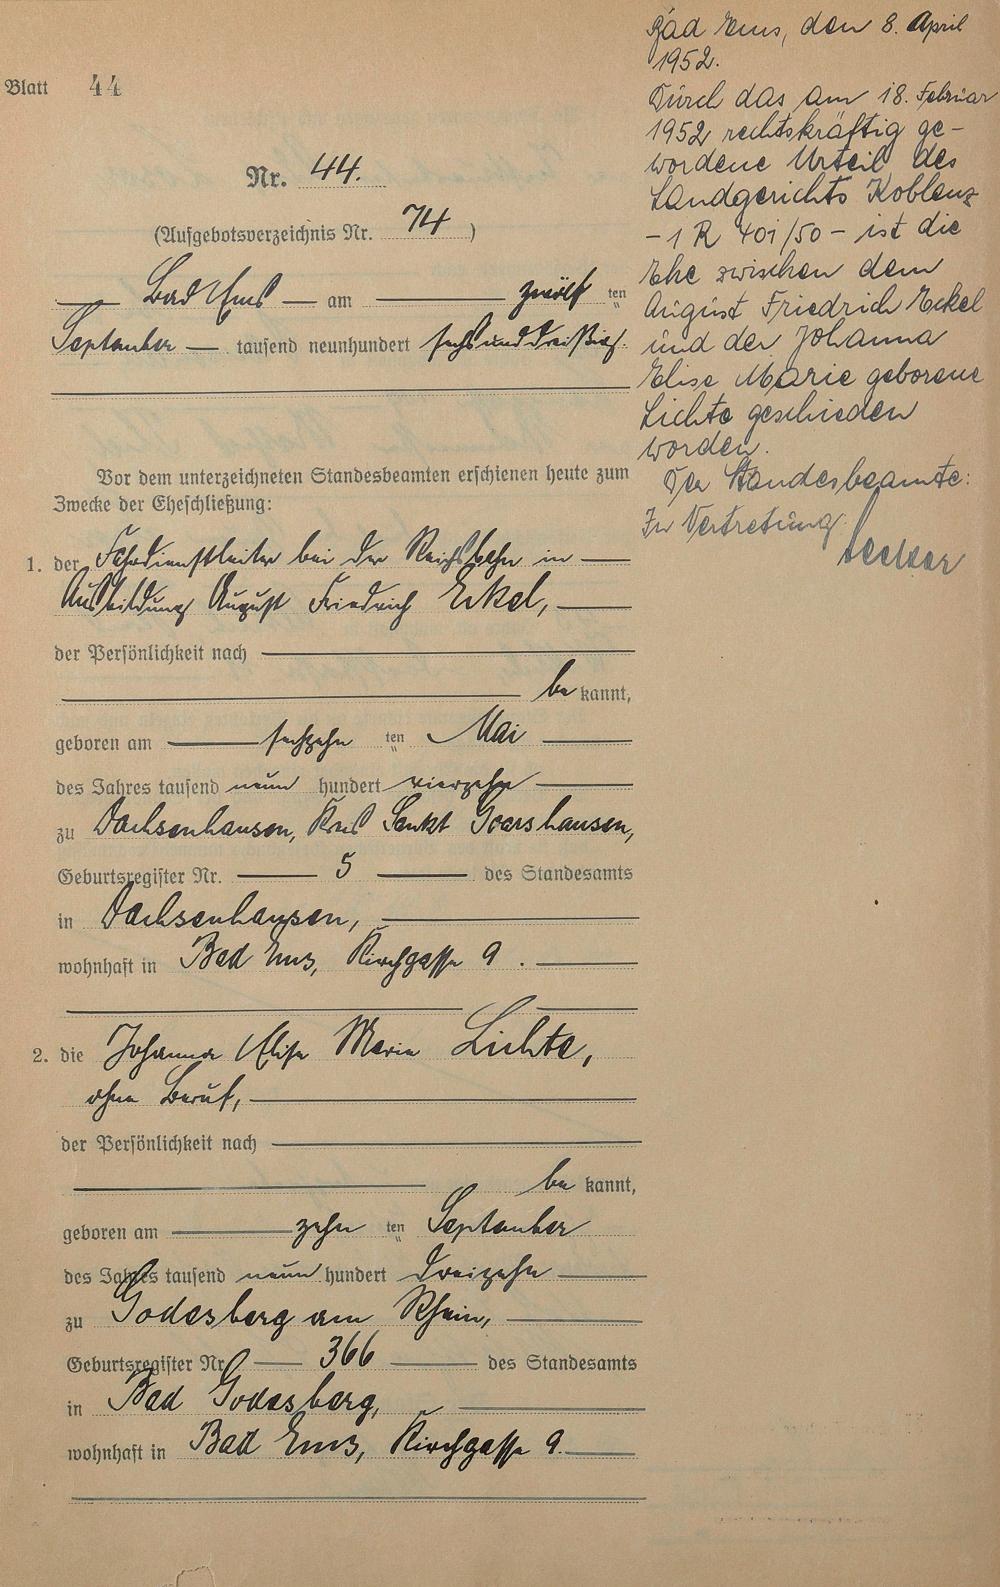 Blatt 44
Nr. 44.
(Aufgebotsverzeichnis Nr. 74)
Bad Ems am zwölf ten
September tausend neunhundert sechsunddreißig.
Vor dem unterzeichneten Standesbeamten erschienen heute zum
Zwecke der Eheschließung:
1. der Fahrdienstleiter bei der Reichsbahn in
Ausbildung August Friedrich Eckel,
der Persönlichkeit nach
be kannt,
geboren am sechzehn ten Mai
des Jahres tausend neun hundert vierzehn
zu Dachsenhausen, Kreis Sankt Goarshausen,
Geburtsregister Nr. 5 des Standesamts
in Dachsenhausen,
wohnhaft in Bad Ems, Kirchgasse 9.
2. die Johanna Elise Marie Lichte,
ohne Beruf,
der Persönlichkeit nach
be kannt,
geboren am zehn ten September
des Jahres tausend neun hundert dreizehn
zu Godesberg am Rhein,
Geburtsregister Nr. 366 des Standesamts
in Bad Godesberg,
wohnhaft in Bad Ems, Kirchgasse 9.
Bad Ems, den 8. April
1952.
Durch das am 18. Februar
1952 rechtskräftig ge-
wordene Urteil des
Landgerichts Koblenz
- 1 R 401/50 - ist die
Ehe zwischen dem
August Friedrich Eckel
und der Johanna
Elise Marie geborene
Lichte geschieden
worden.
Der Standesbeamte:
In Vertretung: